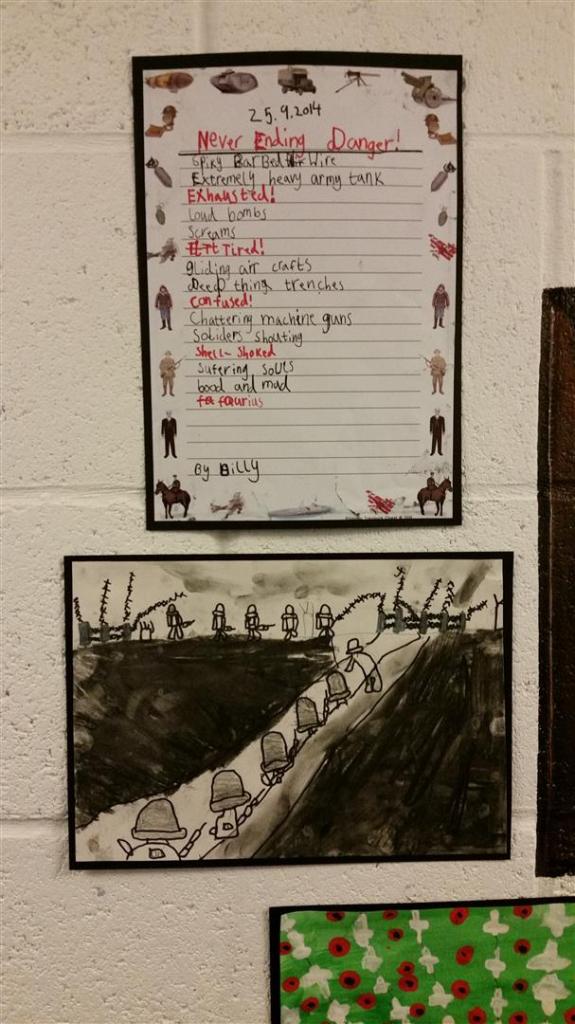 25.9.2014
Never Ending Danger!
Spiky BarBed Wire
Extremely heavy army tank
Exhausted!
Loud bombs
Screams
Tired!
gliding air crafts
Deep thing trenches
Confused!
Chattering machine guns
Soliders shouting
Shell-Shoked
Sufering Souls
bood and mud
faurius
By Billy